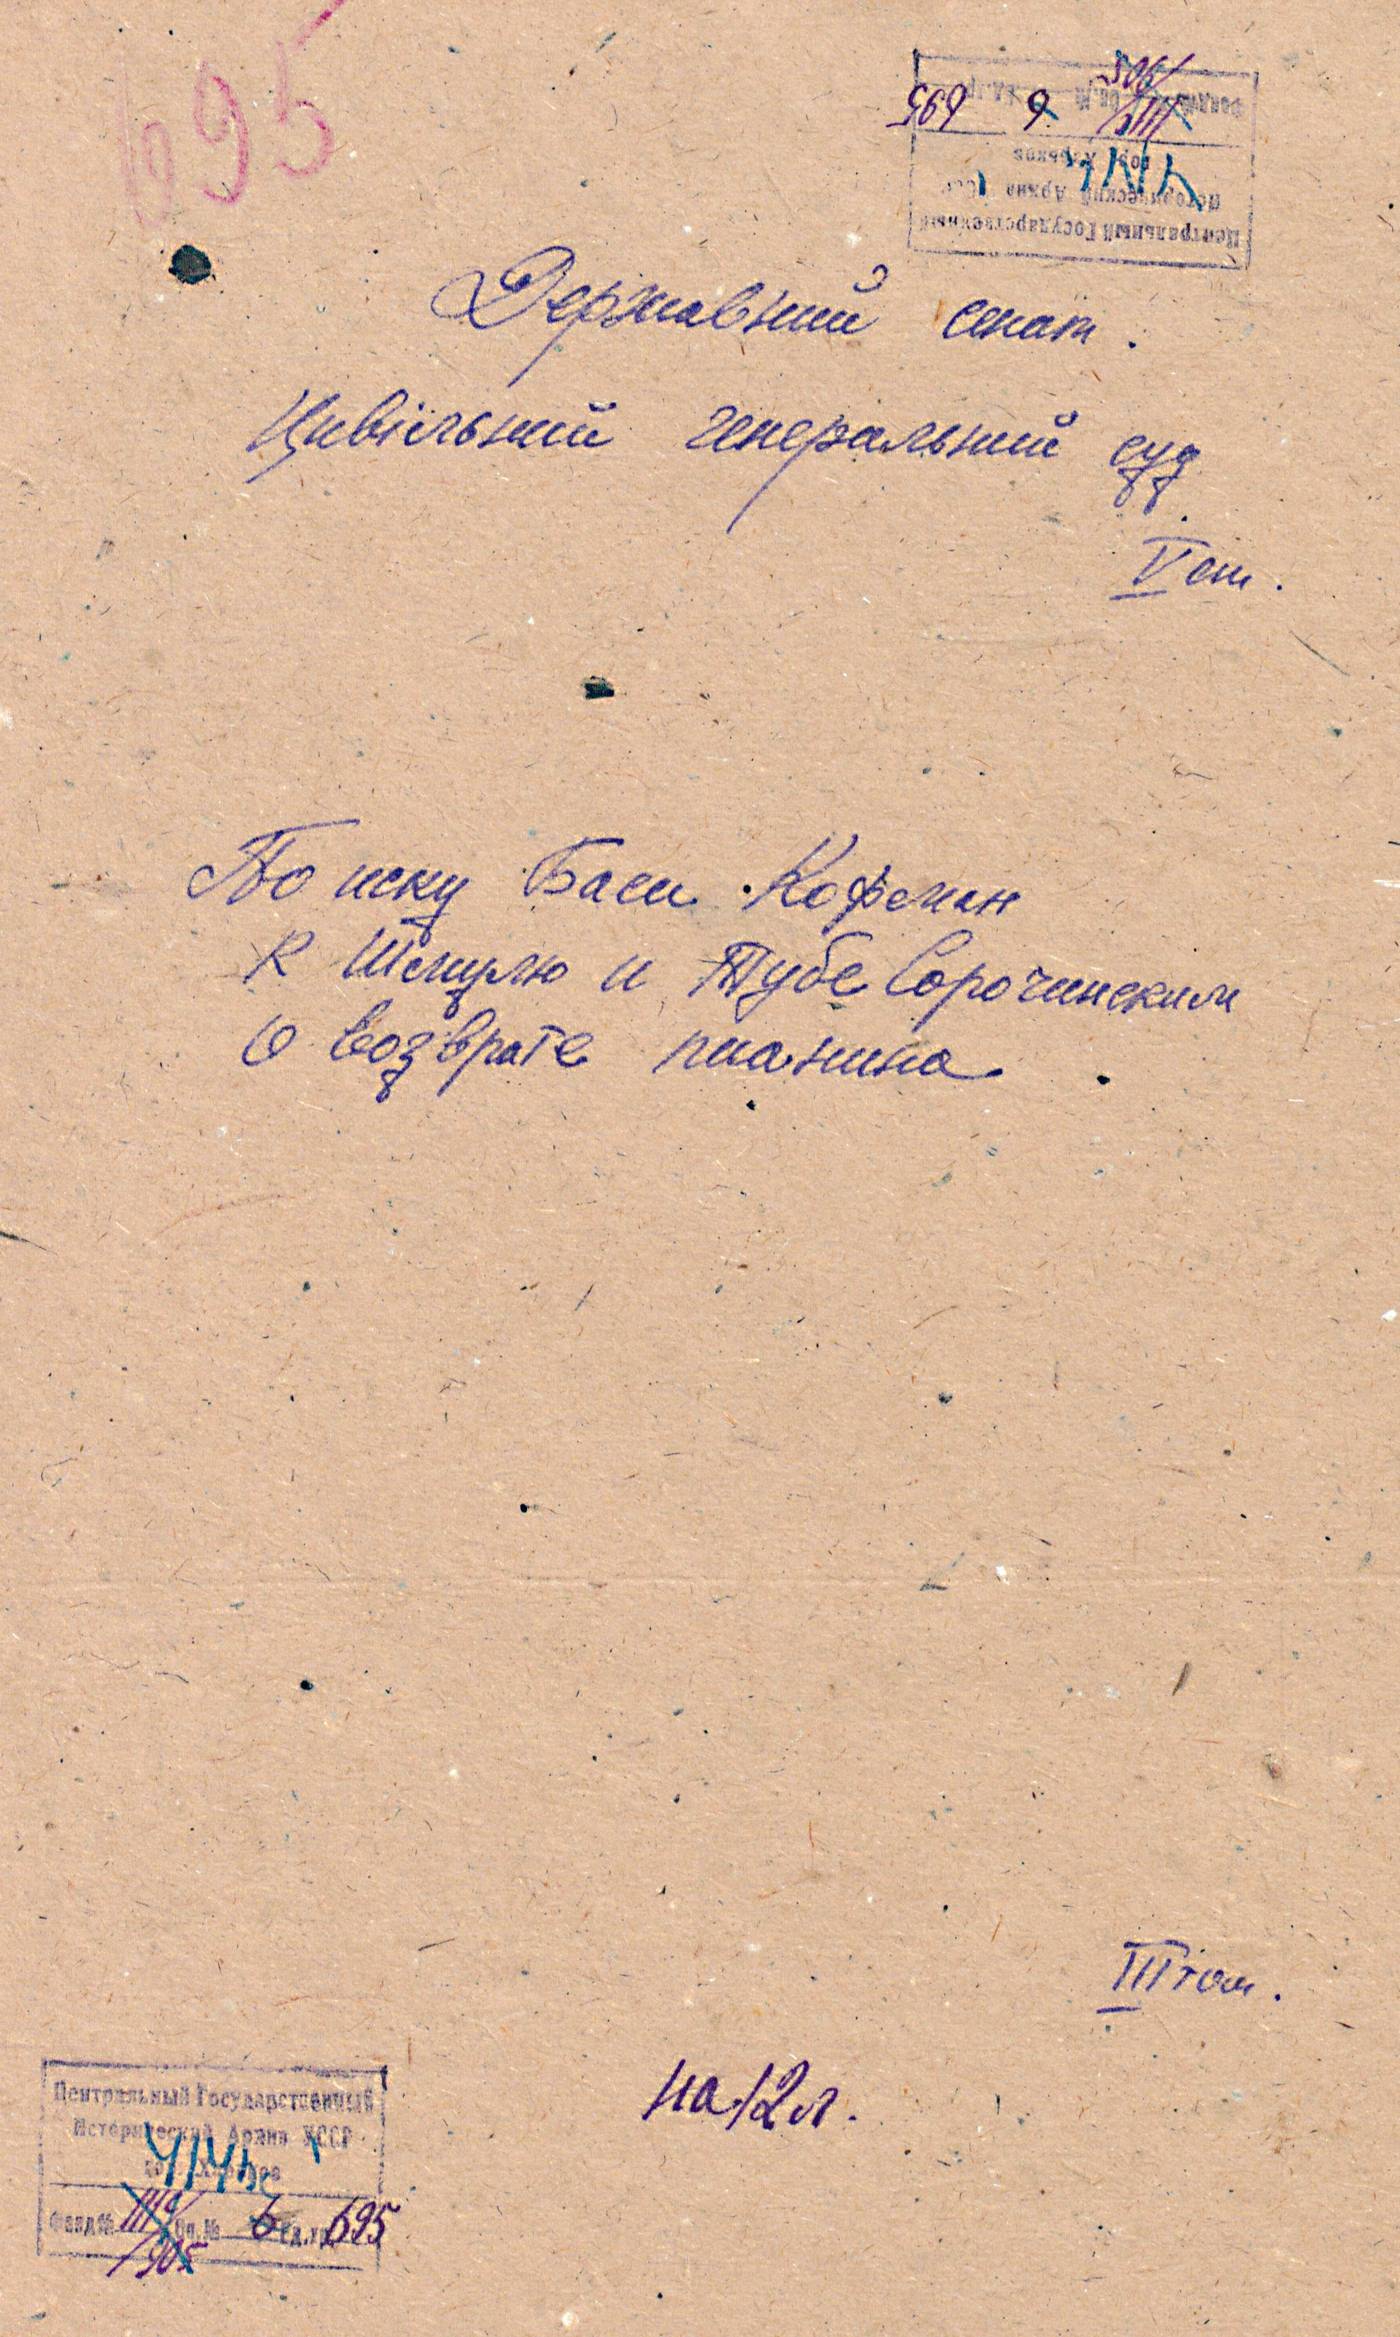 695
Державний сенат.
Цивільний генеральний суд
V ст.
По иску Баси Кофман
к Шмулю и Тубе Сорочинским
о возврате пианина.
III том.
на 12 л.
Центральный Государственный
Исторический Архив УССР
гор. Харьков
Фонд № Оп. № 6 ед. хр. 695
Центральный Государственный
Исторический Архив УССР
гор. Харьков
Фонд № Оп. № 6 ед. хр. 695